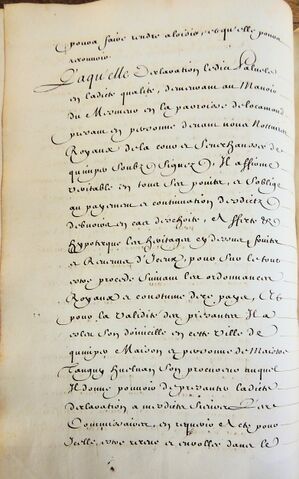 pouoir faire rendre aloisir, et qu'elle pouoir
recouuoir
Laquelle Declaration ledict
en ladicte qualité, demeurant au Manoir
du Mesmeur en la parroisse de locamand
presant en personne deuant nous Nottaires
Royaux de la cour et Seneschaussee de
quimper Soubz Signez, Il affirme
veritable en tous ses pointz, et soblige
au payement et continuation desdictz
debuoirs en cas descheoite, et affecte et
hypotecque les heritages cy dessus
et Reuenus d'Iceux, pour sur le tout
estre procedé suiuant les ordonnances
Royaux et coustume de ce pays, Et
pour la validité des presantes Il a
esleu son domicille en cette ville de
quimper Maison et personne de Maistre
Tanguy son procureur auquel
Il donne pouuoir de presanter ladicte
declaration a mesdictz Sieurs Les
Commissaires, en requerir Acte pour
Icelle, estre receue et enrollee dans le